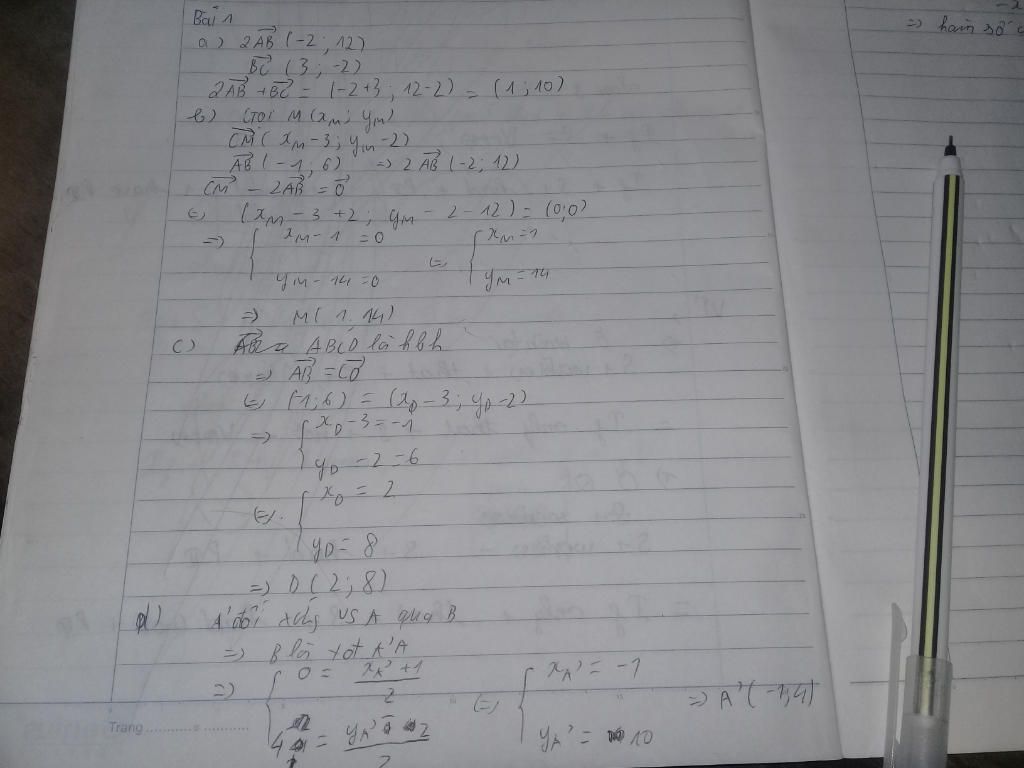 Bài 1
a) 2AB (-2; 12)
BC (3; -2)
2AB + BC = (-2+3; 12-2) = (1; 10)
b) Gọi M (xM; yM)
CM (xM-3; yM-2)
AB (-1; 6) => 2AB (-2; 12)
CM - 2AB = 0
(=) (xM - 3 + 2; yM - 2 - 12) = (0; 0)
=> { xM - 1 = 0 (=) { xM = 1
yM - 14 = 0 yM = 14
=> M (1, 14)
c) ABCD là hbh
=> AB = CD
(=) (-1; 6) = (xD - 3; yD - 2)
=> { xD - 3 = -1
yD - 2 = 6
(=) { xD = 2
yD = 8
=> D (2; 8)
d) A' đối xứng vs A qua B
=> B là tđ A'A
=> { 0 = xA' + 1 / 2 (=) { xA' = -1 => A' (-1, 4)
4 = yA' - 2 / 2 yA' = 10
Trang
=> hàm số